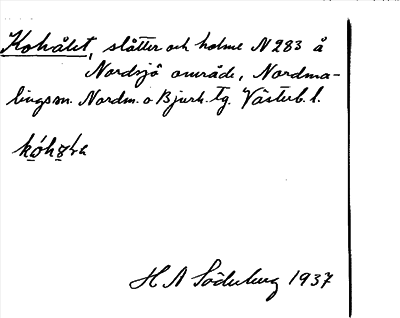 Kohålet, slåtter och holme N 283 å
Nordsjö område, Nordma-
lingssn. Nordm. o Bjurh. tg. Västerb. l.
H A Söderberg 1937